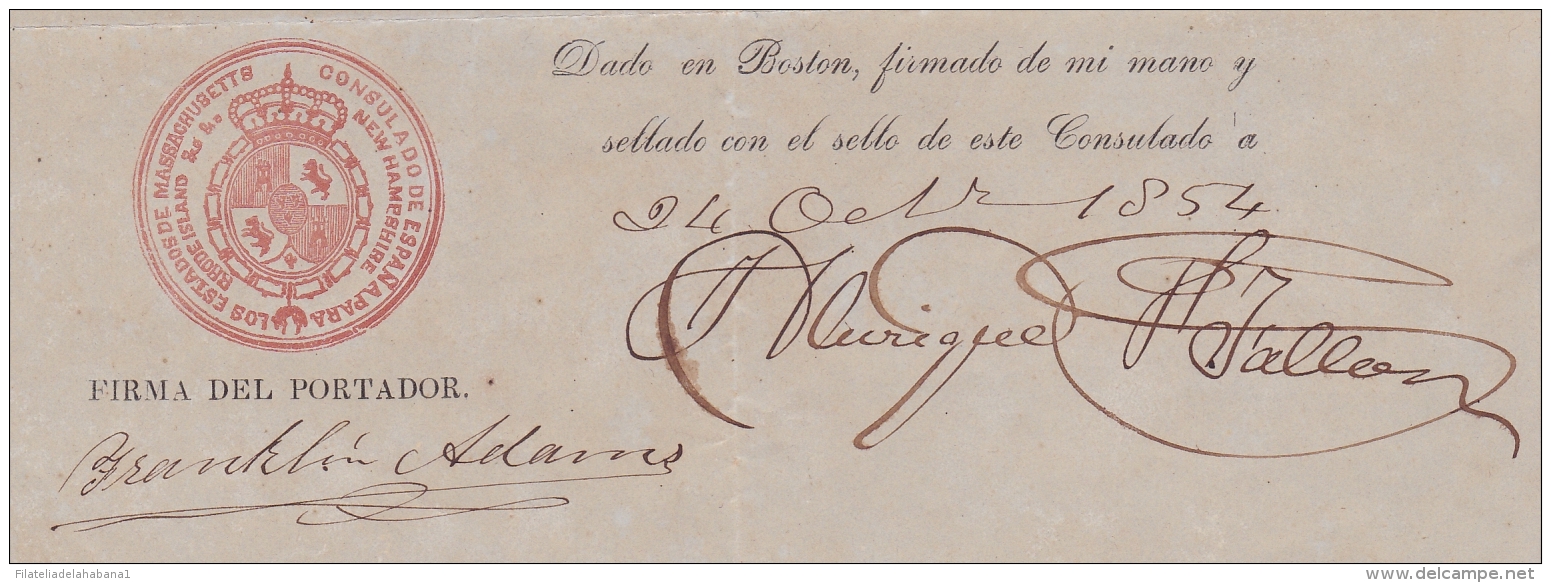 CONSULADO DE ESPAÑA PARA LOS ESTADOS DE MASSACHUSETTS
NEW HAMPSHIRE RHODE ISLAND &c &c
Dado en Boston, firmado de mi mano y
sellado con el sello de este Consulado á
24 Octr 1854
FIRMA DEL PORTADOR.
Franklin Adams
Filateliadelahabana1
www.delcampe.net